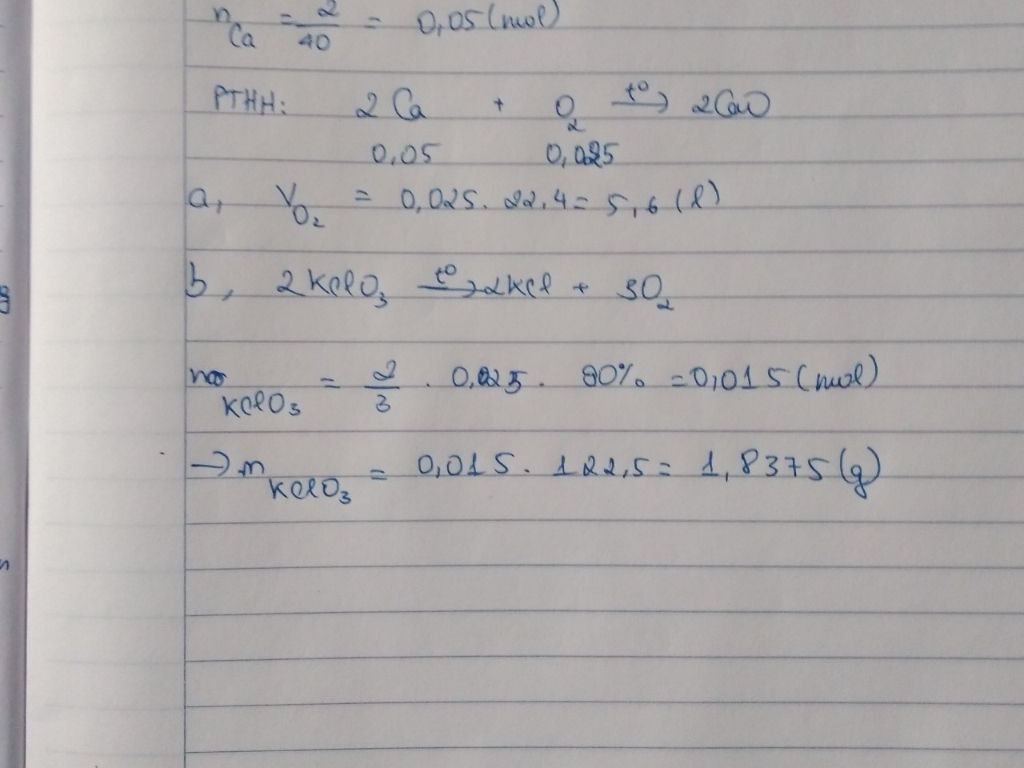 n Ca = 2/40 = 0,05 (mol)
PTHH: 2Ca + O2 t°→ 2CaO
0,05 0,025
a, VO2 = 0,025. 22,4 = 5,6 (l)
b, 2KClO3 t°→ 2KCl + 3O2
nKClO3 = 2/3 . 0,025. 90% = 0,015 (mol)
→ mKClO3 = 0,015. 122,5 = 1,8375 (g)